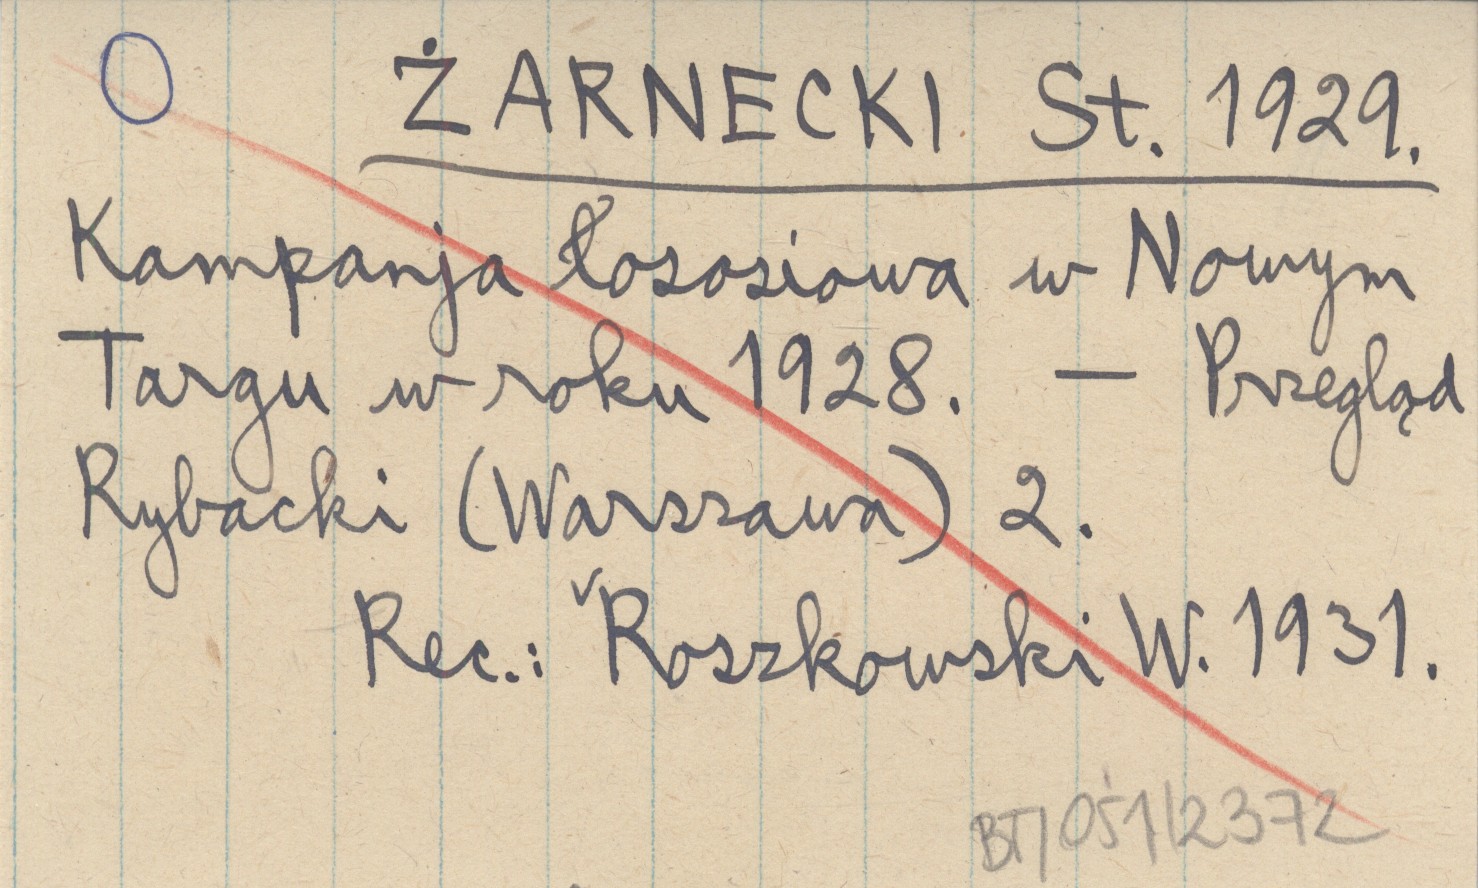 O ŻARNECKI St. 1929.
Kampanja łososiowa w Nowym
Targu w roku 1928. — Przegląd
Rybacki (Warszawa) 2.
Rec.: Roszkowski W. 1931.
BT/OŚ1/2372